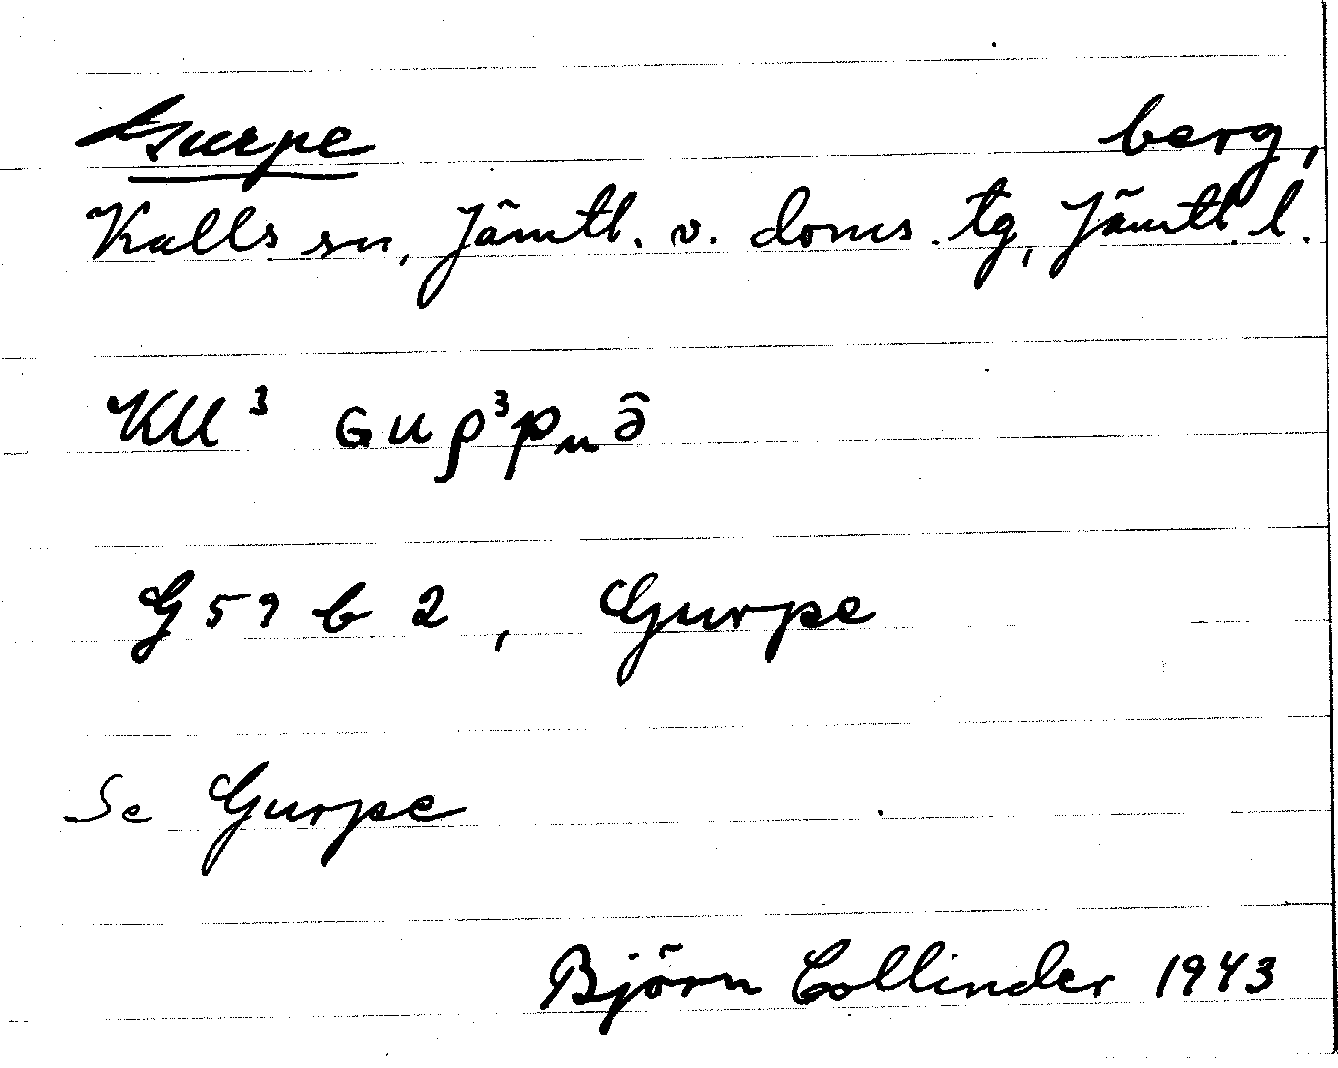 Gurpe berg,
Kalls sn, Jämtl. v. doms. tg, Jämtl. l.
KU³ GUρ³pₙə̑
G 59 b 2, Gurpe
Se Gurpe
Björn Collinder 1943